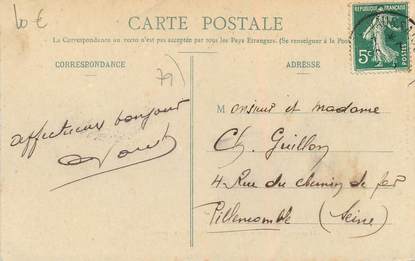 10 €
79
CARTE POSTALE
La Correspondance au recto n'est pas acceptée par tous les Pays Etrangers. (Se renseigner à la Pos
CORRESPONDANCE
ADRESSE
RÉPUBLIQUE FRANÇAISE
5c
Monsieur et madame
affectueux bonjour
Ch. Guillon
4 Rue du chemin de fer
Villemomble (Seine)